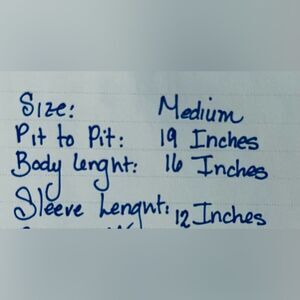 Size: Medium
Pit to Pit: 19 Inches
Body lenght: 16 Inches
Sleeve Lengnt: 12 Inches